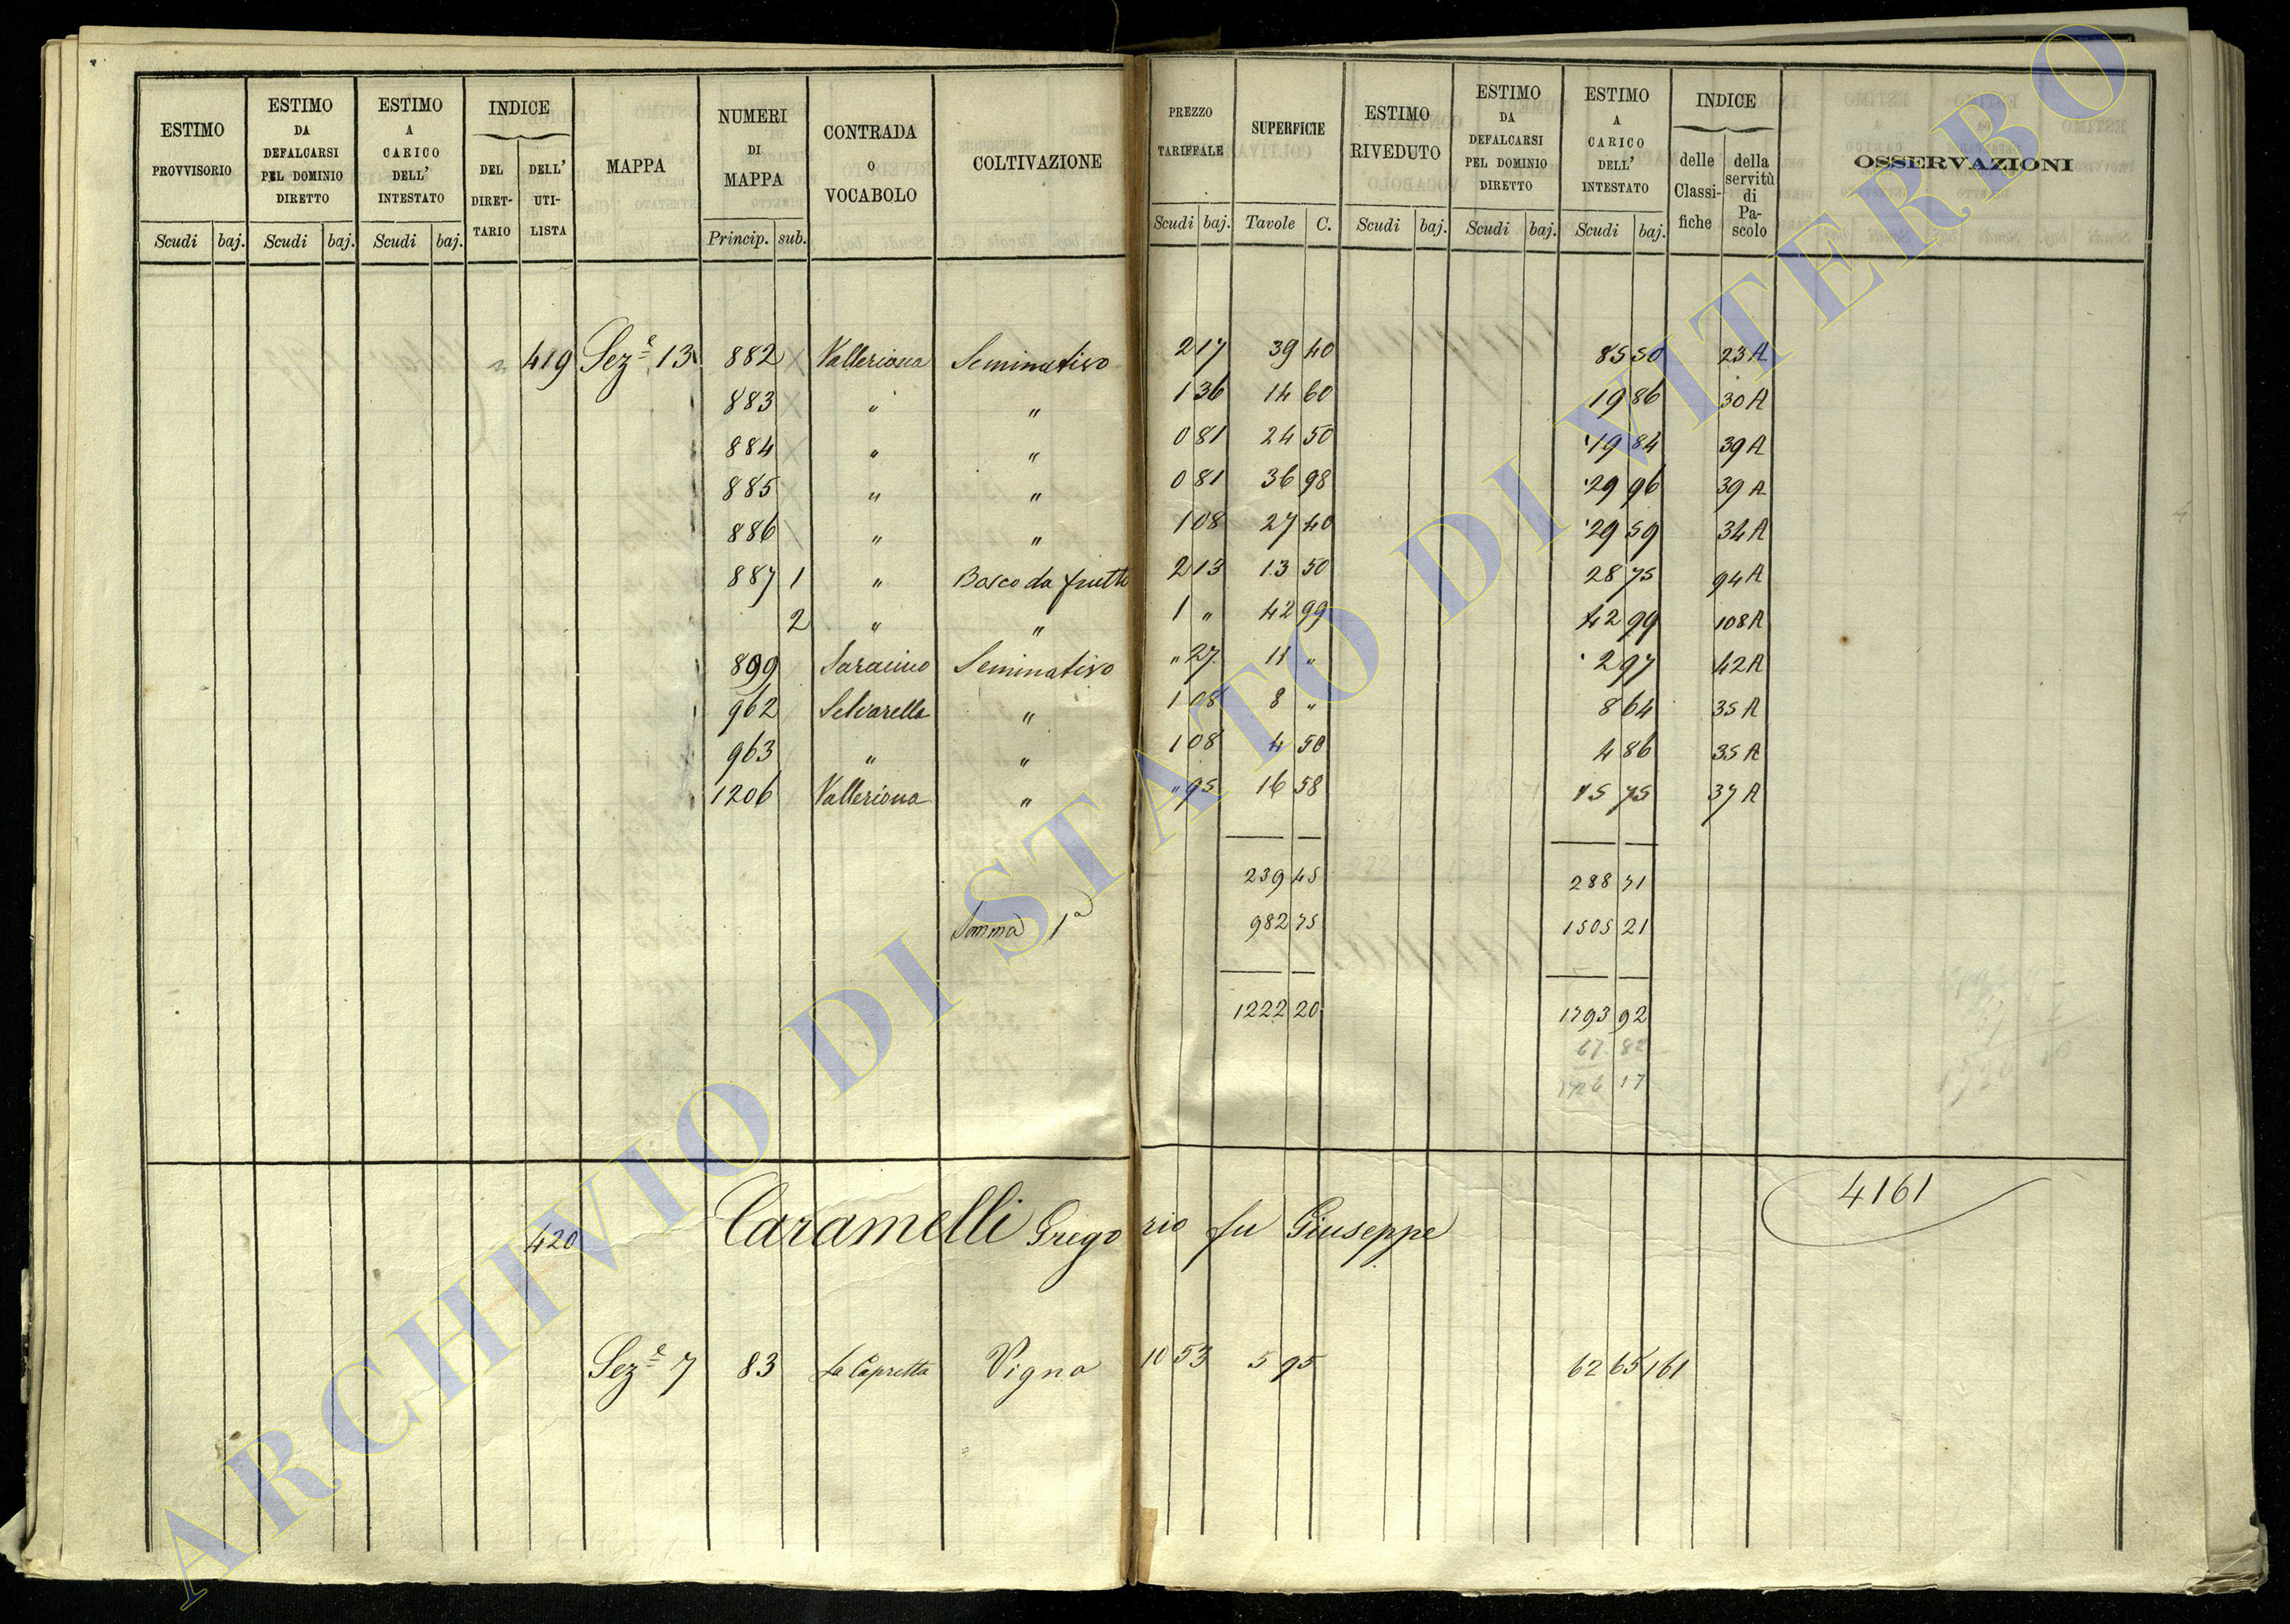 ESTIMO PROVVISORIO | ESTIMO DA DEFALCARSI PEL DOMINIO DIRETTO | ESTIMO A CARICO DELL' INTESTATO | INDICE DEL DIRETTARIO | DELL' UTILISTA | MAPPA | NUMERI DI MAPPA | CONTRADA O VOCABOLO | COLTIVAZIONE | PREZZO TARIFFALE | SUPERFICIE | ESTIMO RIVEDUTO | ESTIMO DA DEFALCARSI PEL DOMINIO DIRETTO | ESTIMO A CARICO DELL' INTESTATO | INDICE delle Classifiche | della servitù di Pascolo | OSSERVAZIONI
Scudi baj. Scudi baj. Scudi baj. Princip. sub. Scudi baj. Tavole C. Scudi baj. Scudi baj. Scudi baj.
419 Sez.e 13 882 Valleriana Seminativo 2 17 39 40 85 50 23 A
883 " " 1 36 14 60 19 86 30 A
884 " " 0 81 24 50 19 84 39 A
885 " " 0 81 36 98 29 96 39 A
886 " " 1 08 27 40 29 59 34 A
887 1 " Bosco da frutto 2 13 13 50 28 75 94 A
2 " " 1 " 42 99 42 99 108 A
899 Saracino Seminativo " 27 11 " 2 97 42 A
962 Selvarella " 1 08 8 " 8 64 35 A
963 " " 1 08 4 50 4 86 35 A
1206 Valleriana " " 95 16 58 15 75 37 A
239 45 288 71
Somma 1a 982 75 1505 21
1222 20 1793 92
67 82
1726 17
420 Caramelli Gregorio fu Giuseppe 4161
Sez.e 7 83 La Capretta Vigna 10 53 5 95 62 65 161
ARCHIVIO DI STATO DI VITERBO